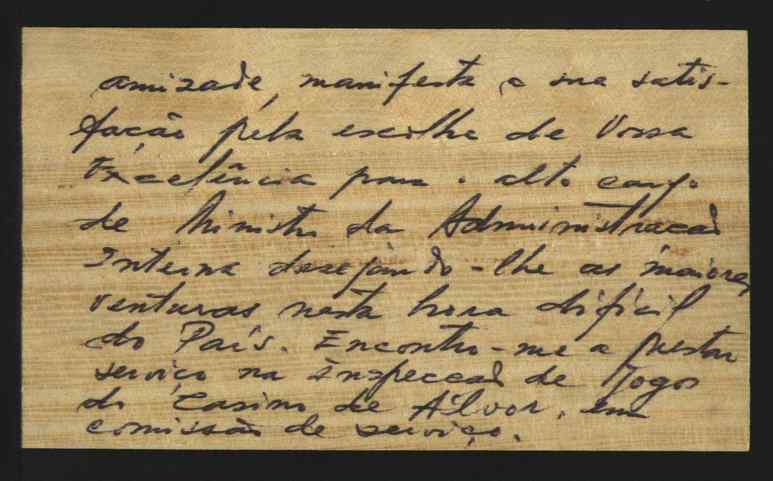 amizade, manifesta a sua satis-
fação pela escolha de Vossa
Excelência para o alto cargo
de Ministro da Administração
Interna desejando-lhe as maiores
venturas nesta hora difícil
do País. Encontro-me a prestar
serviço na Inspecção de Jogos
do Casino de Alvor, em
comissão de serviço.